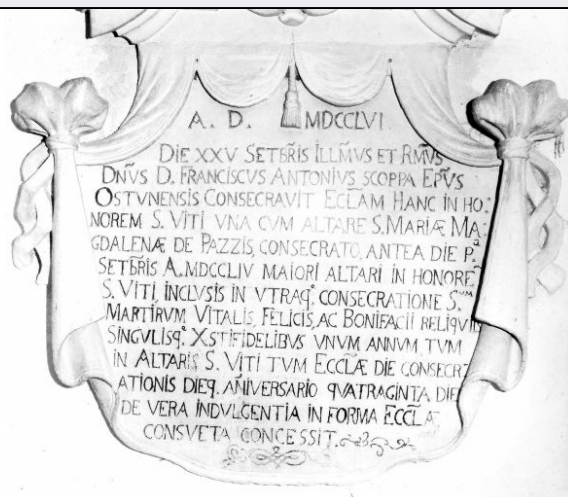 A. D. MDCCLVI
DIE XXV SETB̃RIS ILLM̃VS ET RM̃VS
DÑVS D. FRANCISCUS ANTONIVS SCOPPA EPṼS
OSTVNENSIS CONSECRAVIT ECLÃM HANC IN HO:
NOREM S. VITI VNA CVM ALTARE S. MARIÆ MA
GDALENÆ DE PAZZIS, CONSECRATO, ANTEA DIE Pᵃ
SETB̃RIS A. MDCCLIV MAIORI ALTARI IN HONOREÑ
S. VITI, INCLVSIS IN VTRAQ. CONSECRATIONE S.ᵘᵐ
MARTIRVM VITALIS, FELICIS, AC BONIFACII RELIQVIIS
SINGVLISQ. XSTIFIDELIBVS VNVM ANNVM, TVM
IN ALTARIS S. VITI TVM ECCLÆ̃ DIE CONSECR
ATIONIS DIEQ. ANIVERSARIO QVATRAGINTA DIE
DE VERA INDVLGENTIA IN FORMA ECCLÆ̃
CONSVETA CONCESSIT.